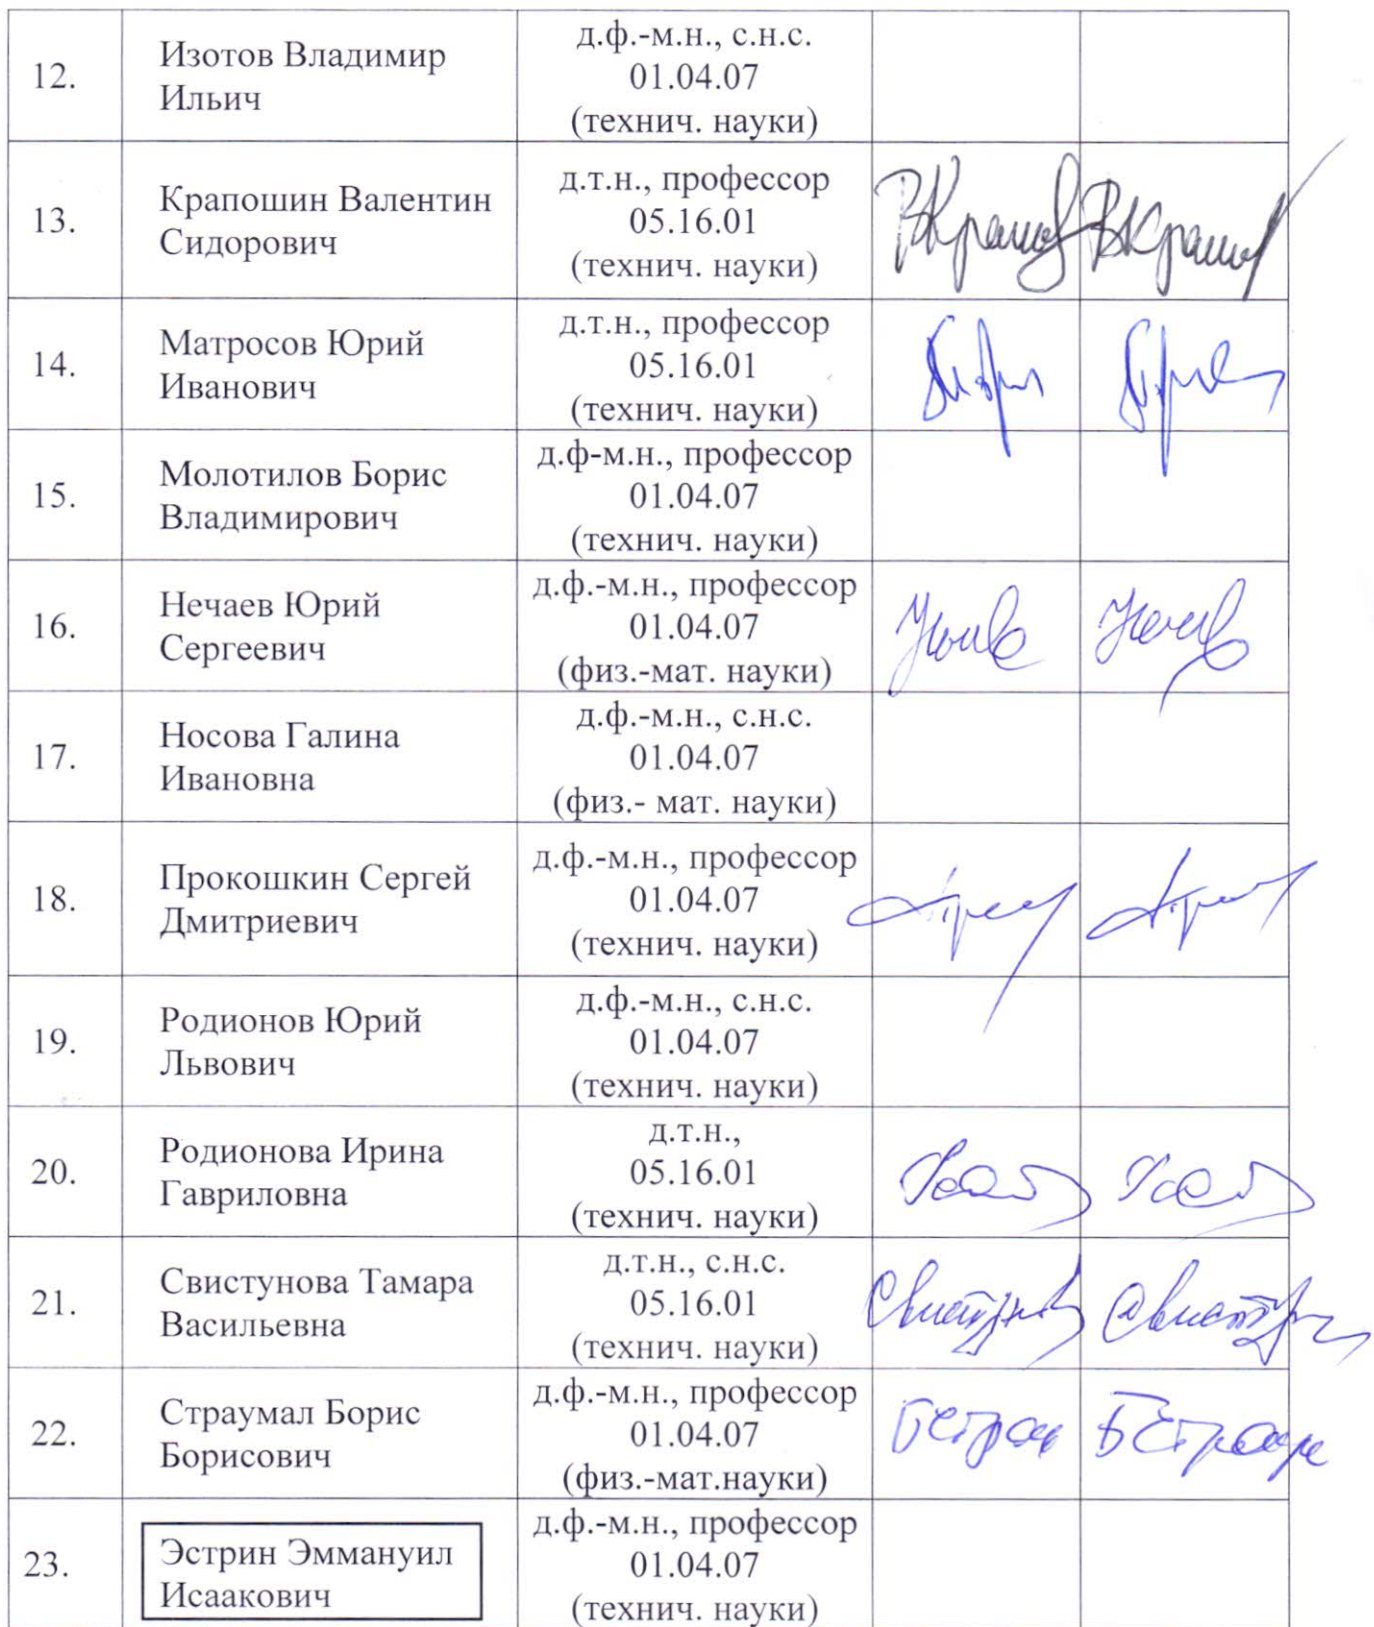 12.
Изотов Владимир
Ильич
д.ф.-м.н., с.н.с.
01.04.07
(технич. науки)
13.
Крапошин Валентин
Сидорович
д.т.н., профессор
05.16.01
(технич. науки)
14.
Матросов Юрий
Иванович
д.т.н., профессор
05.16.01
(технич. науки)
15.
Молотилов Борис
Владимирович
д.ф-м.н., профессор
01.04.07
(технич. науки)
16.
Нечаев Юрий
Сергеевич
д.ф.-м.н., профессор
01.04.07
(физ.-мат. науки)
17.
Носова Галина
Ивановна
д.ф.-м.н., с.н.с.
01.04.07
(физ.- мат. науки)
18.
Прокошкин Сергей
Дмитриевич
д.ф.-м.н., профессор
01.04.07
(технич. науки)
19.
Родионов Юрий
Львович
д.ф.-м.н., с.н.с.
01.04.07
(технич. науки)
20.
Родионова Ирина
Гавриловна
д.т.н.,
05.16.01
(технич. науки)
21.
Свистунова Тамара
Васильевна
д.т.н., с.н.с.
05.16.01
(технич. науки)
22.
Страумал Борис
Борисович
д.ф.-м.н., профессор
01.04.07
(физ.-мат.науки)
23.
Эстрин Эммануил
Исаакович
д.ф.-м.н., профессор
01.04.07
(технич. науки)